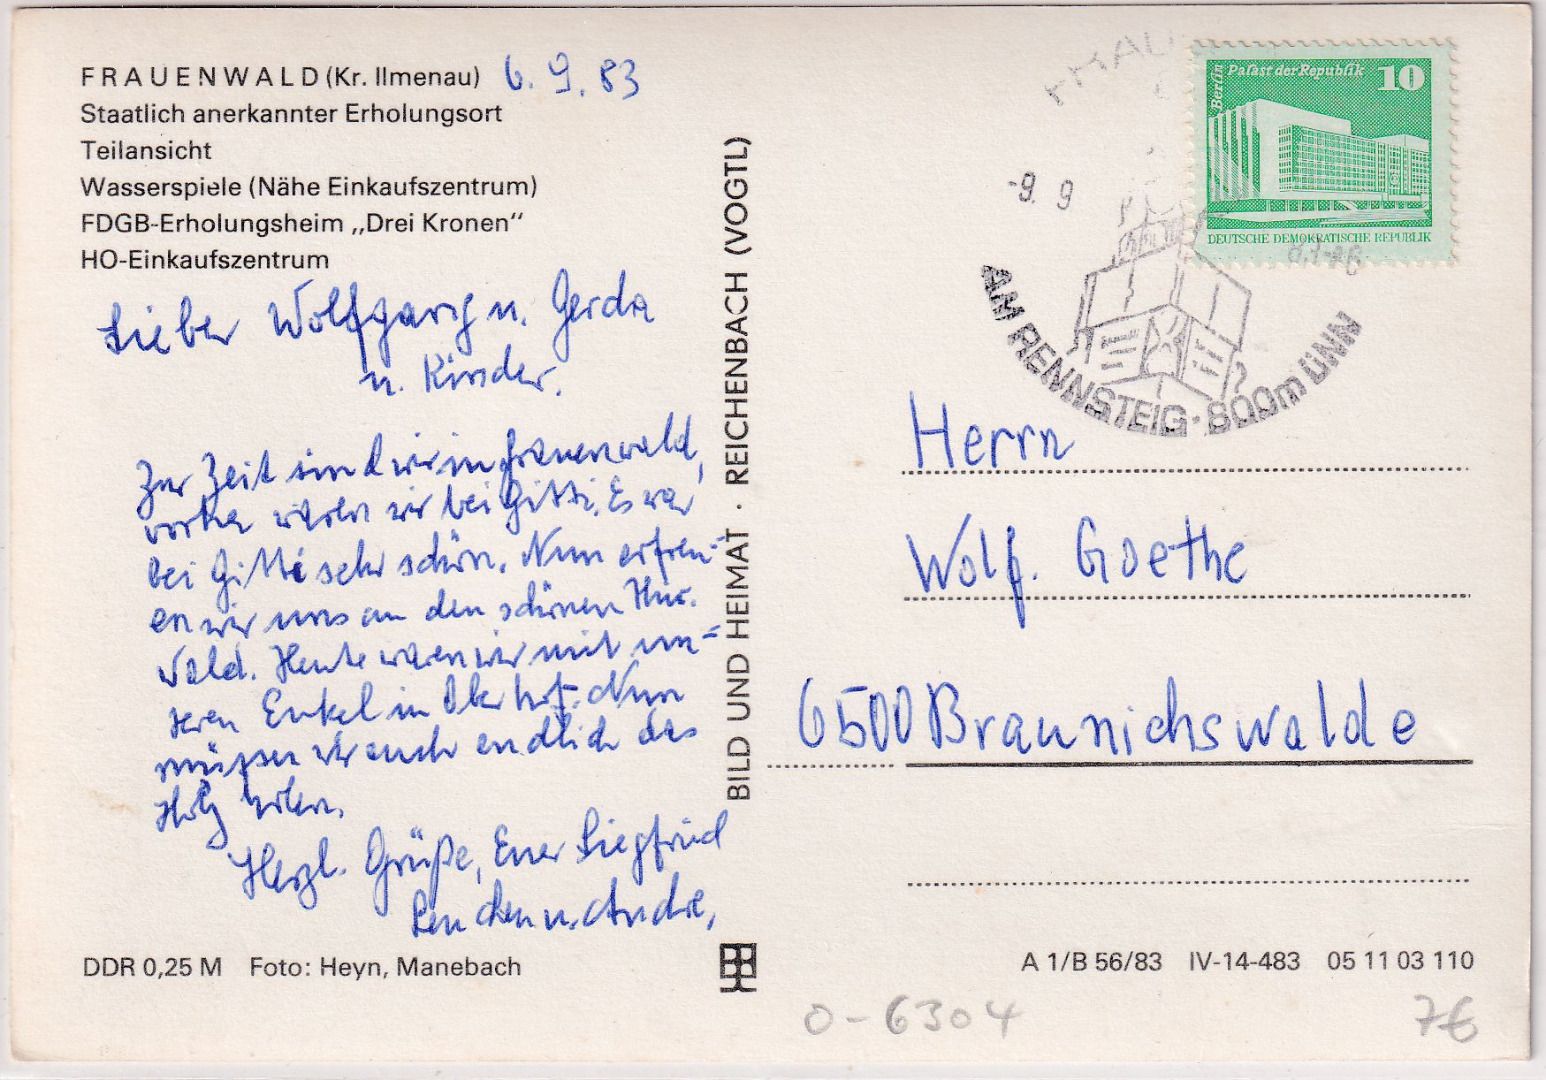 FRAUENWALD (Kr. Ilmenau) 6. 9. 83
Staatlich anerkannter Erholungsort
Teilansicht
Wasserspiele (Nähe Einkaufszentrum)
FDGB-Erholungsheim „Drei Kronen“
HO-Einkaufszentrum
Lieber Wolfgang u. Gerda
u. Kinder.
Zur Zeit sind wir in Frauenwald,
vorher waren wir bei Gitti. Es war
bei Gitti sehr schön. Nun erfreu-
en wir uns an den schönen Thür.
Wald. Heute waren wir mit un=
seren Enkel in Oberhof. Nun
müssen wir auch endlich das
Holz holen.
Herzl. Grüße, Euer Siegfried
Lenchen u. Andre,
DDR 0,25 M Foto: Heyn, Manebach
BILD UND HEIMAT · REICHENBACH (VOGTL)
Berlin
Palast der Republik 10
DEUTSCHE DEMOKRATISCHE REPUBLIK
-9. 9
AM RENNSTEIG · 800m üNN
Herrn
Wolf. Goethe
6500 Braunichswalde
A 1/B 56/83 IV-14-483 05 11 03 110
O-6304
7€